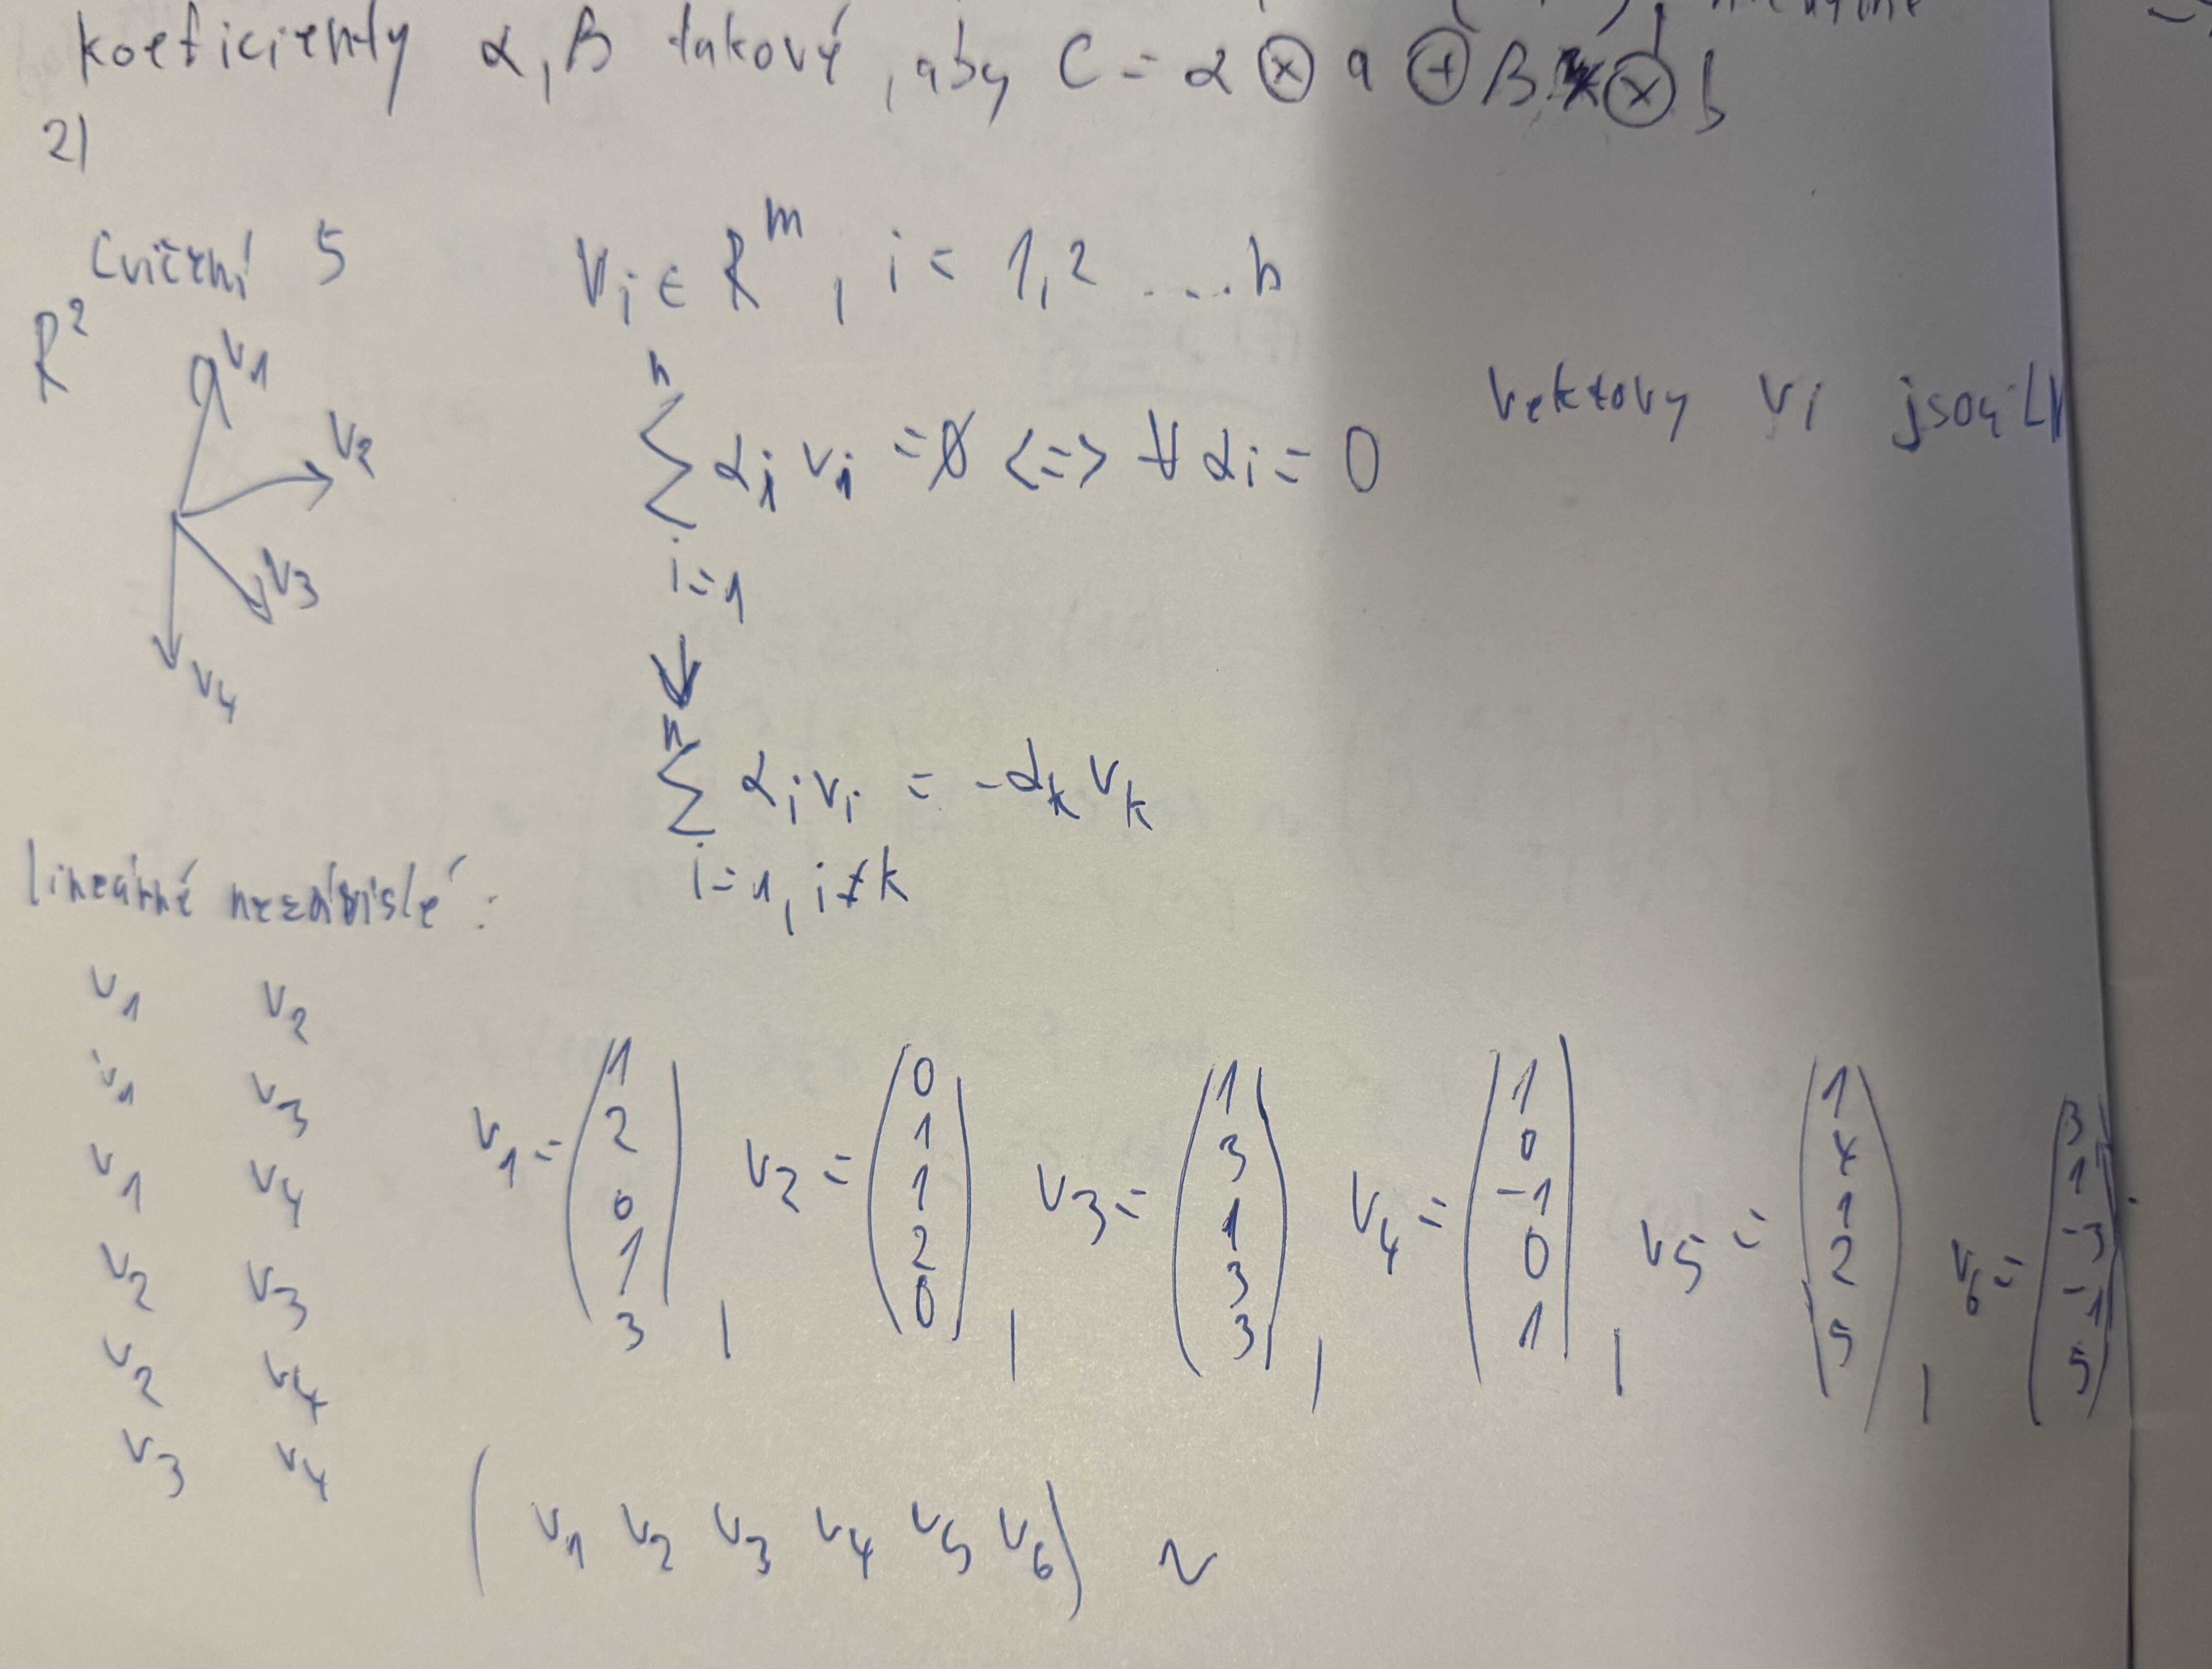 koeficienty α, β takový, aby C = α ⊗ a ⊕ β ⊗ b
2)
Cvičení 5
vᵢ ∈ Rᵐ, i = 1,2 ....n
R²
v₁
v₂
v₃
v₄
n
∑ αᵢ vᵢ = 0 <=> ∀ αᵢ = 0
i=1
vektory vi jsou LN
↓
n
∑ αᵢ vᵢ = -αₖ vₖ
i=1, i≠k
lineárně nezávislé:
v₁ v₂
v₁ v₃
v₁ v₄
v₂ v₃
v₂ v₄
v₃ v₄
v₁ = (1 2 0 1 3), v₂ = (0 1 1 2 0), v₃ = (1 3 1 3 3), v₄ = (1 0 -1 0 1), v₅ = (1 4 1 2 5), v₆ = (3 1 -3 -1 5)
( v₁ v₂ v₃ v₄ v₅ v₆ ) ~